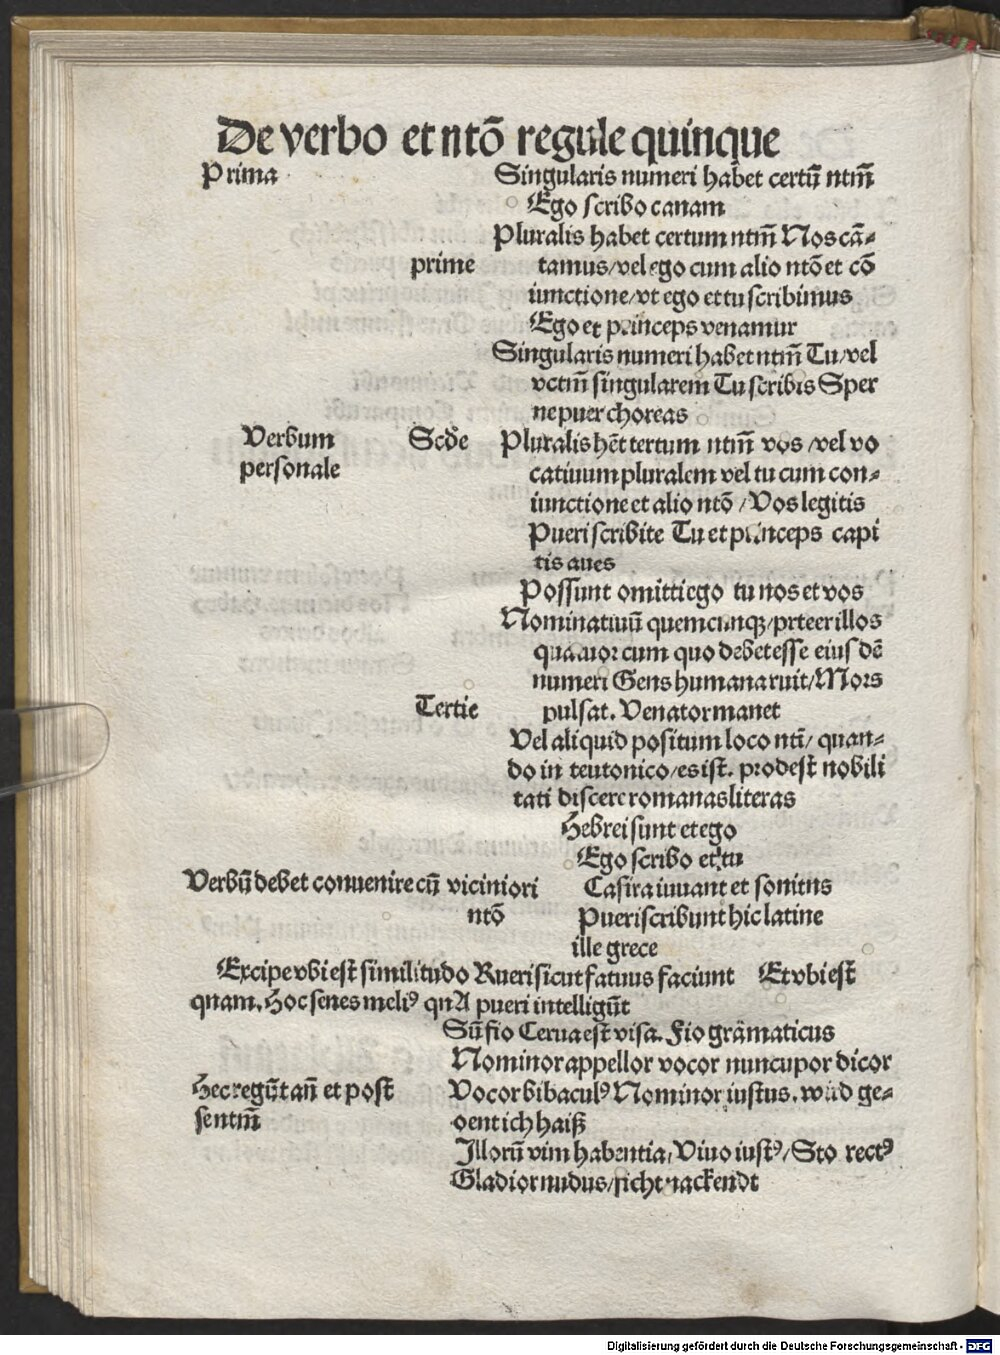 De verbo et ntō regule quinque
Prima Singularis numeri habet certū ntm̄
Ego scribo canam
Pluralis habet certum ntm̄ Nos cā⸗
prime tamus/vel ego cum alio ntō et cō
iunctione/vt ego et tu scribimus
Ego et princeps venamur
Singularis numeri habet ntm̄ Tu/vel
vctm̄ singularem Tu scribis Sper
ne puer choreas
Verbum Scde Pluralis hēt tertum ntm̄ vos/vel vo
personale catiuum pluralem vel tu cum con⸗
iunctione et alio ntō/Vos legitis
Pueri scribite Tu et princeps capi
tis aues
Possunt omitti ego tu nos et vos
Nominatiuū quemcunqꝫ/prteer illos
quatuor cum quo debet esse eiusdē
numeri Gens humana ruit/Mors
Tertie pulsat. Venator manet
Vel aliquid positum loco nti/quan⸗
do in teutonico/es ist. prodest nobili
tati discere romanas literas
Hebrei sunt et ego
Ego scribo et tu
Verbū debet conuenire cū viciniori Castra iuuant et sonitus
ntō Pueri scribunt hic latine
ille grece
Excipe vbi est similitudo Rueri sicut fatuus faciunt Et vbi est
quam. Hoc senes meliꝰ pueri intelligūt
Sū fio Cerua est visa. Fio grāmaticus
Nominor appellor vocor nuncupor dicor
Hec regūt an̄ et post Vocor bibaculꝰ Nominor iustus. wird ge⸗
sentm̄ nent ich haiß
Illorū vim habentia/Viuo iustꝰ/Sto rectꝰ
Gladior nudus/ficht nackendt
Digitalisierung gefördert durch die Deutsche Forschungsgemeinschaft - DFG